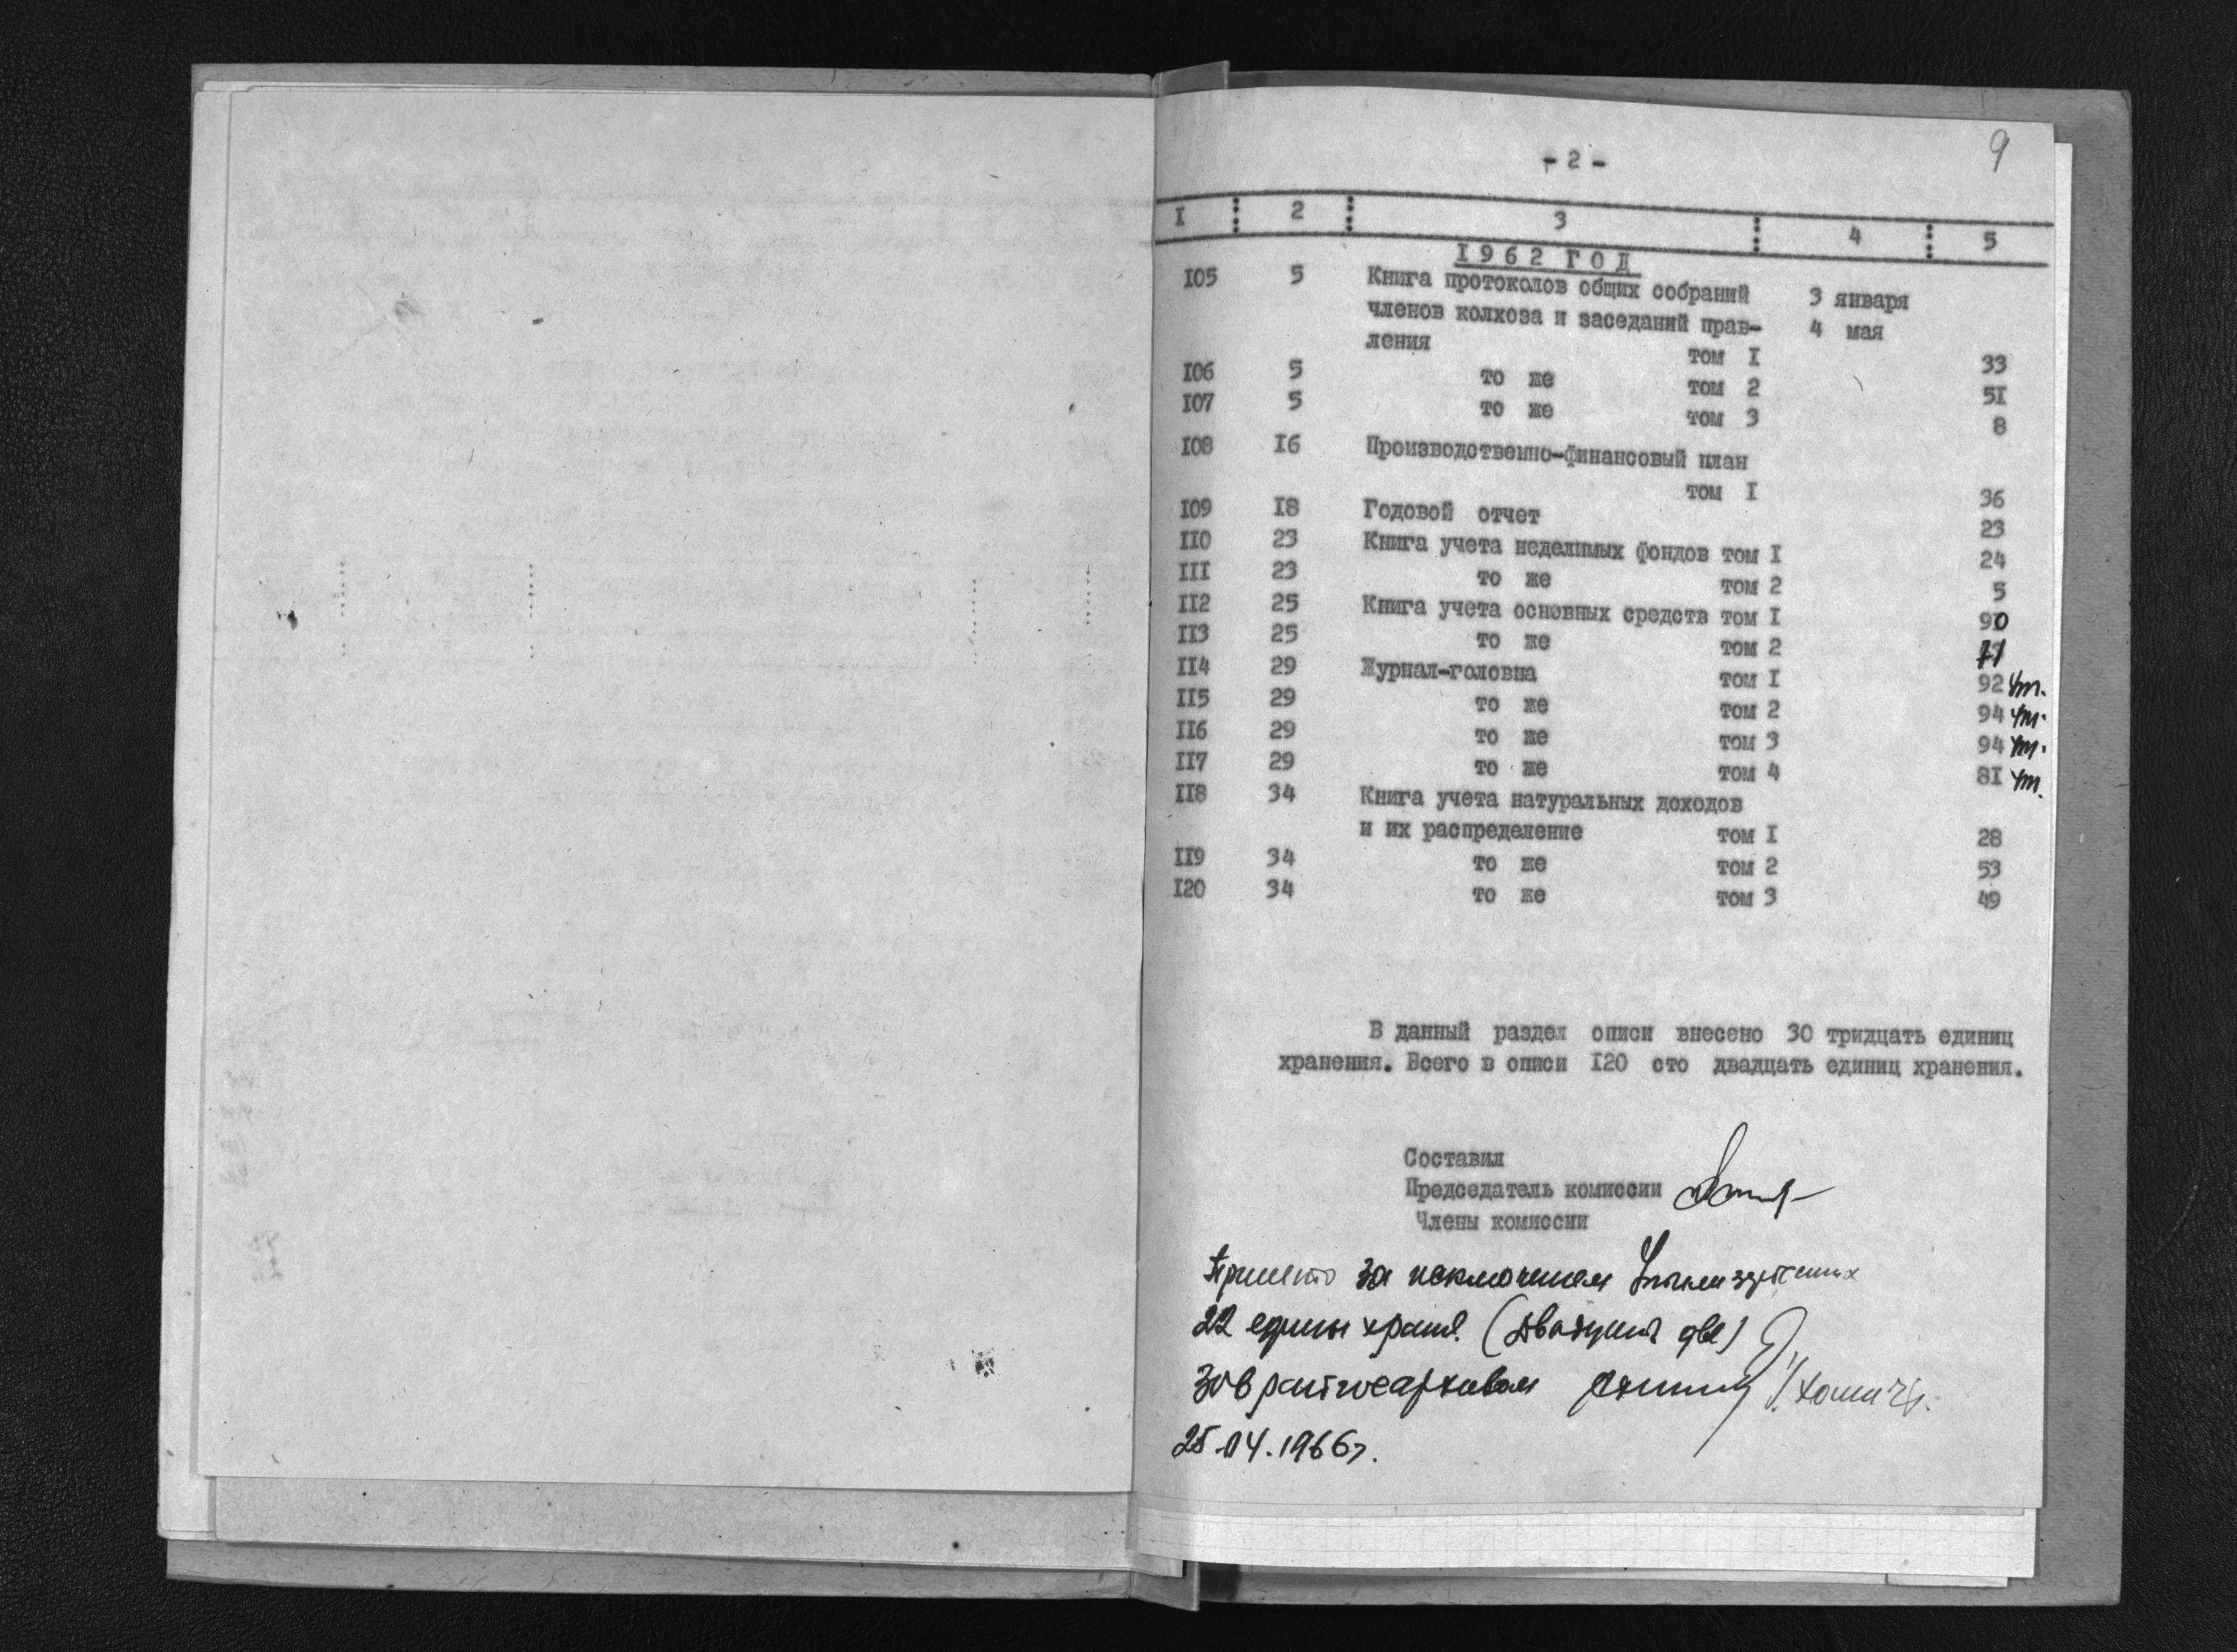 9
- 2 -
I 2 3 4 5
1962 ГОД
I05 5 Книга протоколов общих собраний 3 января
членов колхоза и заседаний прав- 4 мая
ления том I 33
I06 5 то же том 2 5I
I07 5 то же том 3 8
I08 I6 Производственно-финансовый план
том I 36
I09 I8 Годовой отчет 23
II0 23 Книга учета неделимых фондов том I 24
III 23 то же том 2 5
II2 25 Книга учета основных средств том I 90
II3 25 то же том 2
II4 29 Журнал-головна том I 92 ун.
II5 29 то же том 2 94 ун.
II6 29 то же том 3 94 ун.
II7 29 то же том 4 8I ун.
II8 34 Книга учета натуральных доходов
и их распределение том I 28
II9 34 то же том 2 53
I20 34 то же том 3 49
В данный раздел описи внесено 30 тридцать единиц
хранения. Всего в описи I20 сто двадцать единиц хранения.
Составил
Председатель комиссии
Члены комиссии
Принято за исключением
22 единиц хранен. (двадцать две)
Зав райгосархивом
25.04.1966г.